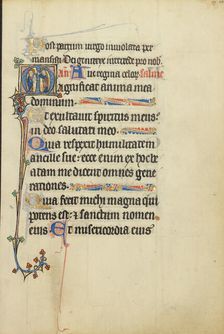 Post partum virgo inviolata per
mansisti Dei genitrix intercede pro nob
an Ave regina celor
Magnificat anima mea
dominum
Et exultavit spiritus meus
in deo salutari meo
Quia respexit humilitatem
ancille sue: ecce enim ex hoc
beatam me dicent omnes gene
rationes
Quia fecit michi magna qui
potens est: & sanctum nomen
eius Et misericordia eius